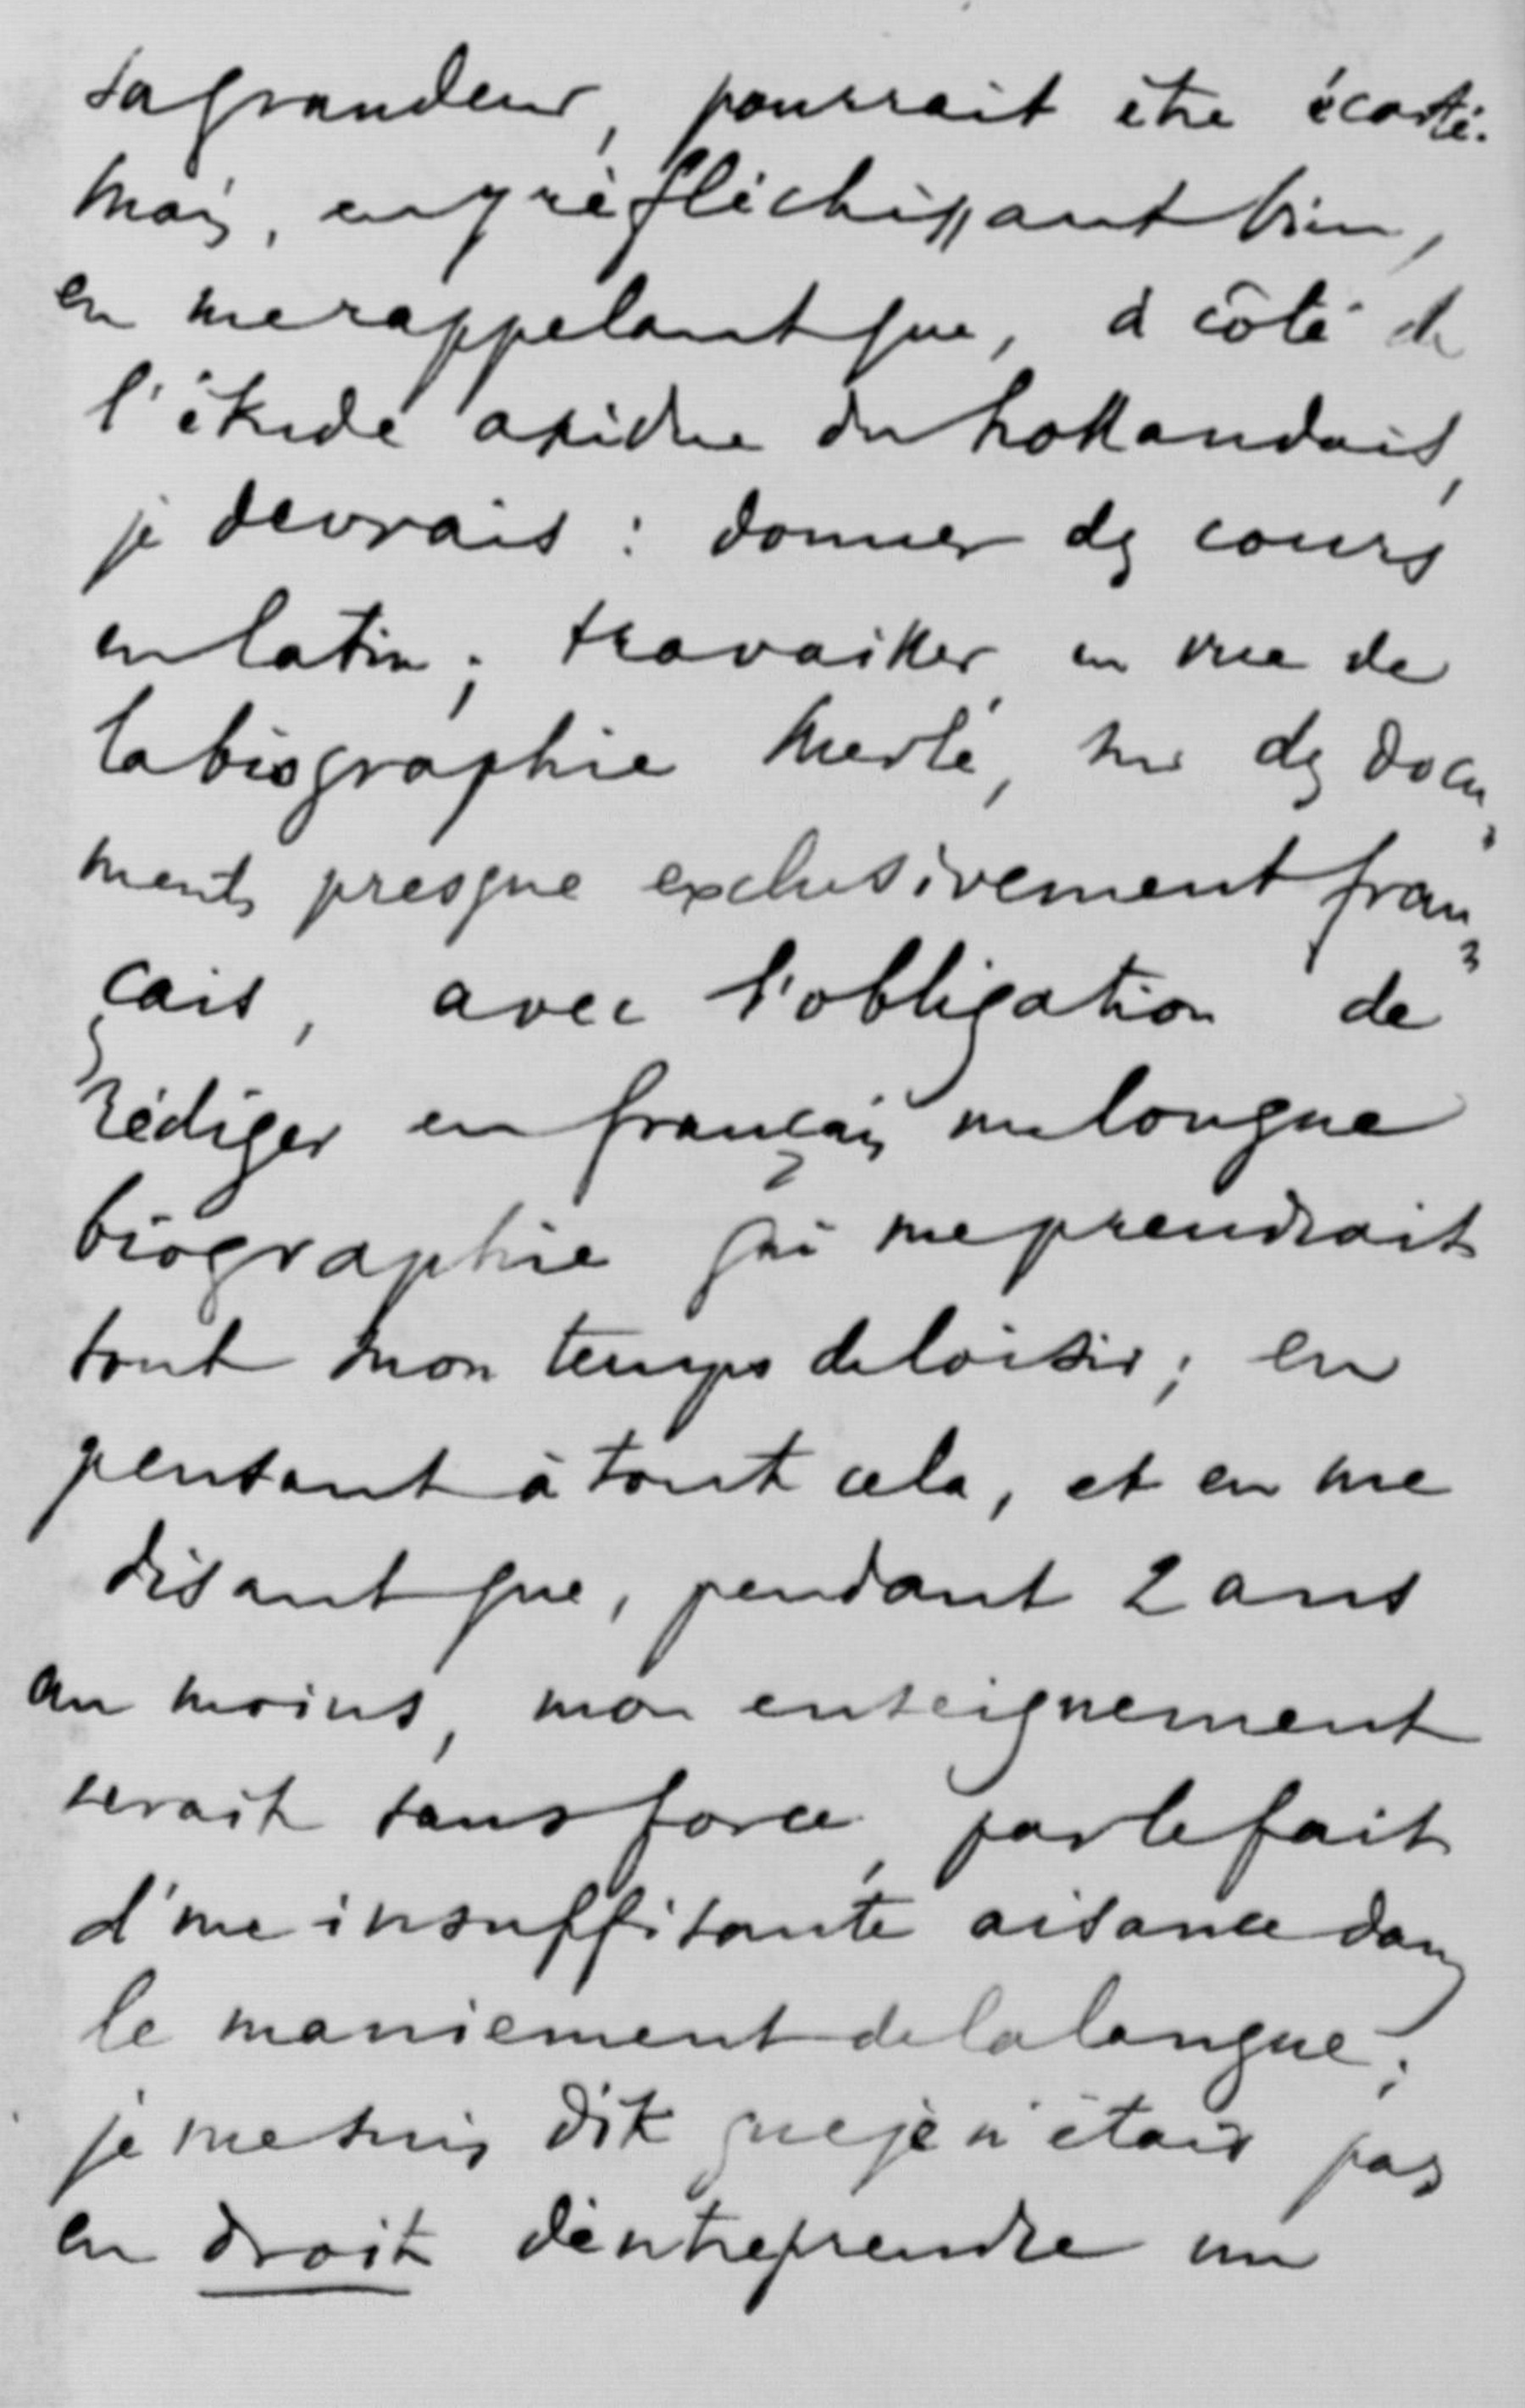 sa grandeur, pourrait être écarté.
Mais, en y réfléchissant bien,
en me rappelant que, à côté de
l'étude assidue du hollandais,
je devrais : donner des cours
en latin ; travailler, en vue de
la biographie Merle, sur des docu-
ments presque exclusivement fran-
çais, avec l'obligation de
rédiger en français une longue
biographie qui me prendrait
tout mon temps de loisir ; en
pensant à tout cela, et en me
disant que, pendant 2 ans
au moins, mon enseignement
serait sans force, par le fait
d'une insuffisante aisance dans
le maniement de la langue ;
je me suis dit que je n'étais pas
en droit d'entreprendre un